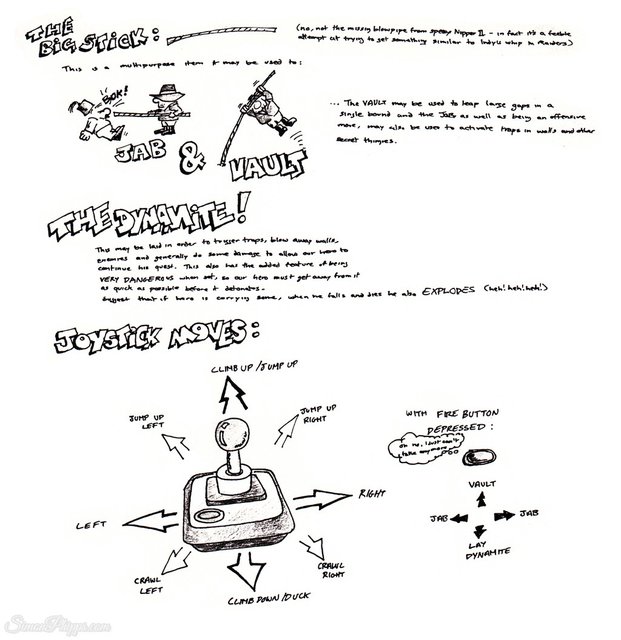 THE
BIG STICK:
(no, not the missing blowpipe from speedy Nipper II - in fact it's a feeble
attempt at trying to get something similar to Indy's whip in Raiders)
This is a multipurpose item & may be used to:
BOK!
JAB & VAULT
... The VAULT may be used to leap large gaps in a
single bound and the JAB as well as being an offensive
move, may also be used to activate traps in walls and other
secret thingies.
THE DYNAMITE!
This may be laid in order to trigger traps, blow away walls,
enemies and generally do some damage to allow our hero to
continue his quest. This also has the added feature of being
VERY DANGEROUS when set, so our hero must get away from it
as quick as possible before it detonates.
Suggest that if hero is carrying some, when he falls and dies he also EXPLODES (heh! heh! heh!)
JOYSTICK MOVES:
CLIMB UP/JUMP UP
JUMP UP
LEFT
JUMP UP
RIGHT
LEFT
RIGHT
CRAWL
LEFT
CRAWL
RIGHT
CLIMB DOWN/DUCK
WITH FIRE BUTTON
DEPRESSED:
oh no, I just can't
take anymore
VAULT
JAB
JAB
LAY
DYNAMITE
SimonPhipps.com